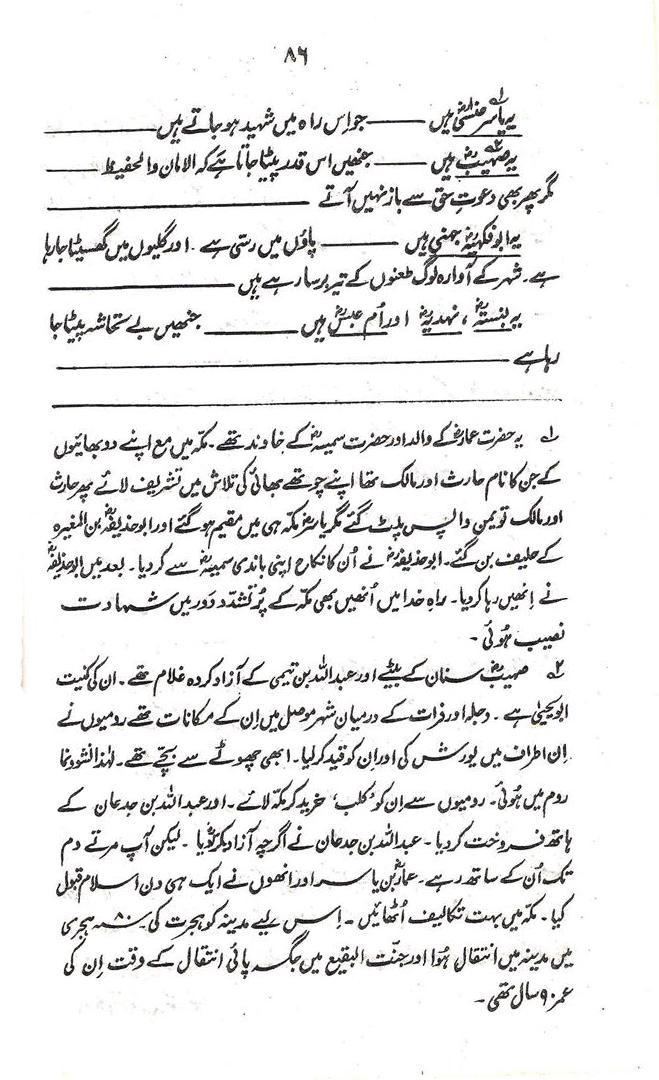 ۸۶
یہ یاسر عنسیؓ ہیں ——— جو اِس راہ میں شہید ہو جاتے ہیں ———
یہ صہیبؓ ہیں ——— جنھیں اس قدر پیٹا جاتا ہے کہ الامان والحفیظ ———
مگر پھر بھی دعوتِ حق سے باز نہیں آتے ———
یہ ابو فکیہہؓ جہنی ہیں ——— پاؤں میں رسی ہے۔ اور گلیوں میں گھسیٹا جا رہا
ہے۔ شہر کے آوارہ لوگ طعنوں کے تیر برسا رہے ہیں ———
یہ لبنتہؓ، نہدیہؓ اور اُم عبسؓ ہیں ——— جنھیں بے تحاشہ پیٹا جا
رہا ہے ———
۱؎ یہ حضرت عمارؓ کے والد اور حضرت سمیہؓ کے خاوند تھے۔ مکہ میں مع اپنے دو بھائیوں
کے جن کا نام حارث اور مالک تھا اپنے چوتھے بھائی کی تلاش میں تشریف لائے پھر حارث
اور مالک تو یمن واپس پلٹ گئے مگر یاسرؓ مکہ ہی میں مقیم ہو گئے اور ابو حذیفہؓ بن المغیرہ
کے حلیف بن گئے۔ ابو حذیفہؓ نے اُن کا نکاح اپنی باندی سمیہؓ سے کر دیا۔ بعد میں ابو حذیفہؓ
نے اِنھیں رہا کر دیا۔ راہِ خدا میں اُنھیں بھی مکہ کے پُر تشدّد دَور میں شہادت
نصیب ہُوئی۔
۲؎ صہیبؓ سنان کے بیٹے اور عبداللہ بن تیمی کے آزاد کردہ غلام تھے۔ ان کی کنیت
ابو یحییٰ ہے۔ دجلہ اور فرات کے درمیان شہر موصل میں اِن کے مکانات تھے رومیوں نے
اِن اطراف میں یورش کی اور اِن کو قید کر لیا۔ ابھی چھوٹے سے بچے تھے۔ لہٰذا نشو و نما
روم میں ہُوئی۔ رومیوں سے اِن کو ’کلب‘ خرید کر مکہ لائے۔ اور عبداللہ بن جدعان کے
ہاتھ فروخت کر دیا۔ عبداللہ بن جدعان نے اگرچہ آزاد کر دیا۔ لیکن آپ مرتے دم
تک اُن کے ساتھ رہے۔ عمارؓ بن یاسر اور انھوں نے ایک ہی دن اسلام قبول
کیا۔ مکہ میں بہت تکالیف اُٹھائیں۔ اِس لیے مدینہ کو ہجرت کی۔ ۸۰ سنہ ہجری
میں مدینہ میں انتقال ہُوا اور جنّت البقیع میں جگہ پائی انتقال کے وقت اِن کی
عمر ۹۰ سال تھی۔